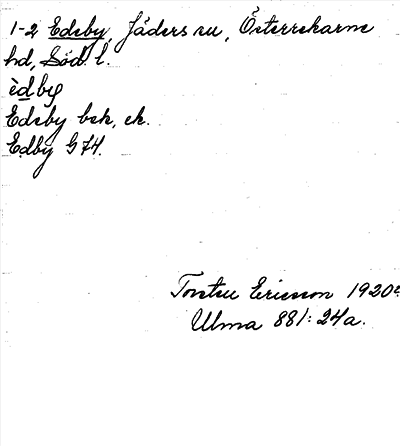 1-2 Edeby, Jäders sn, Österrekarne
hd, Söd. l.
èdby
Edeby bek, ek.
Edby G 74.
Torsten Ericsson 1920
Ulma 881:24a.